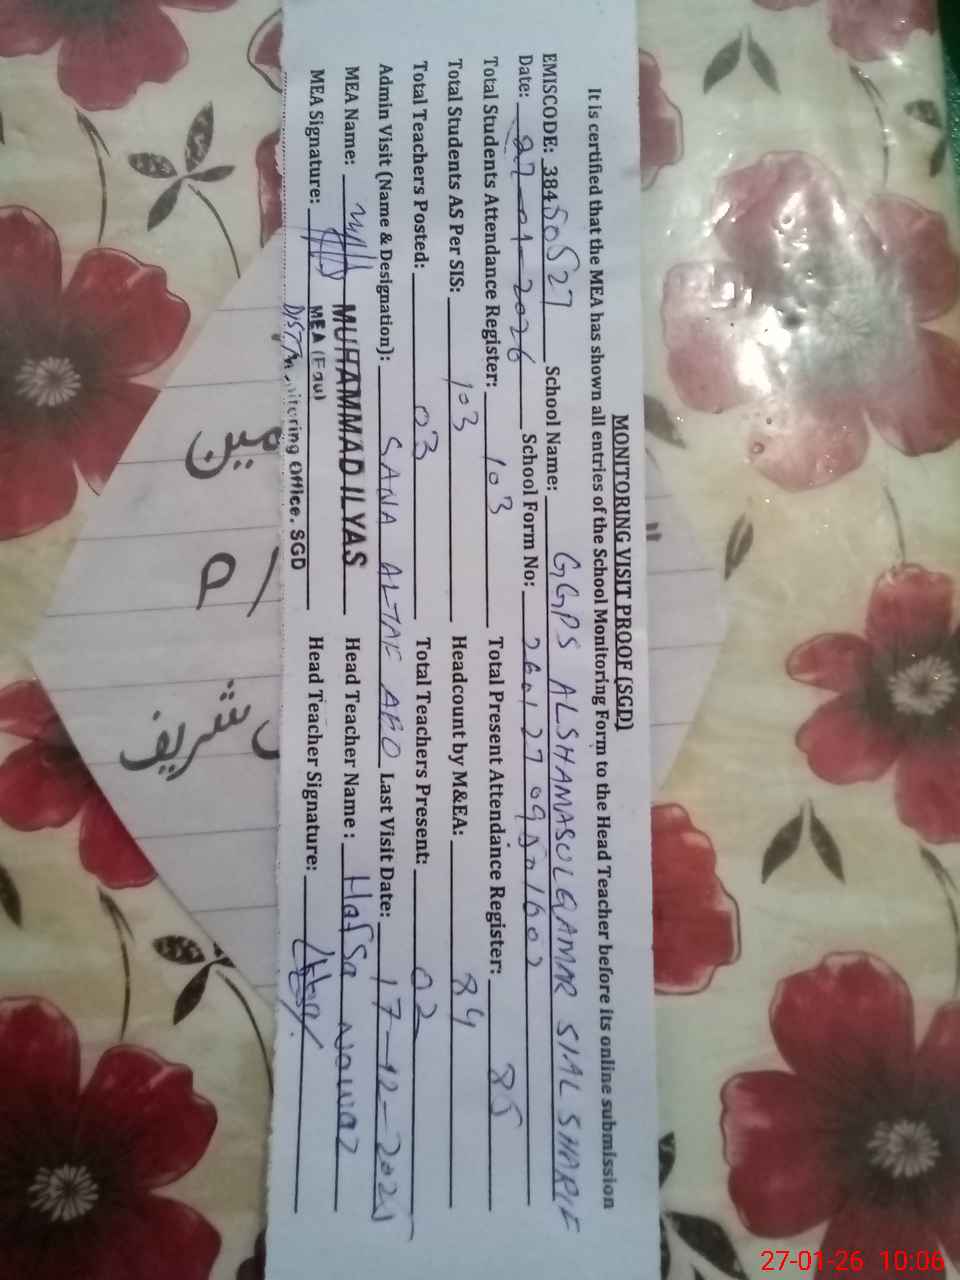 MONITORING VISIT PROOF (SGD)
It is certified that the MEA has shown all entries of the School Monitoring Form to the Head Teacher before its online submission
EMISCODE: 38450527 School Name: GGPS ALSHAMASULQAMAR SIAL SHARIF
Date: 27-01-2026 School Form No:
Total Students Attendance Register: 103 Total Present Attendance Register: 85
Total Students AS Per SIS: 103 Headcount by M&EA: 84
Total Teachers Posted: 03 Total Teachers Present: 02
Admin Visit (Name & Designation): SANA ALTAF AEO Last Visit Date: 17-12-2025
MEA Name: MUHAMMAD ILYAS Head Teacher Name: Hafsa Nawaz
MEA Signature: MEA Head Teacher Signature:
Monitoring Office. SGD
27-01-26 10:06